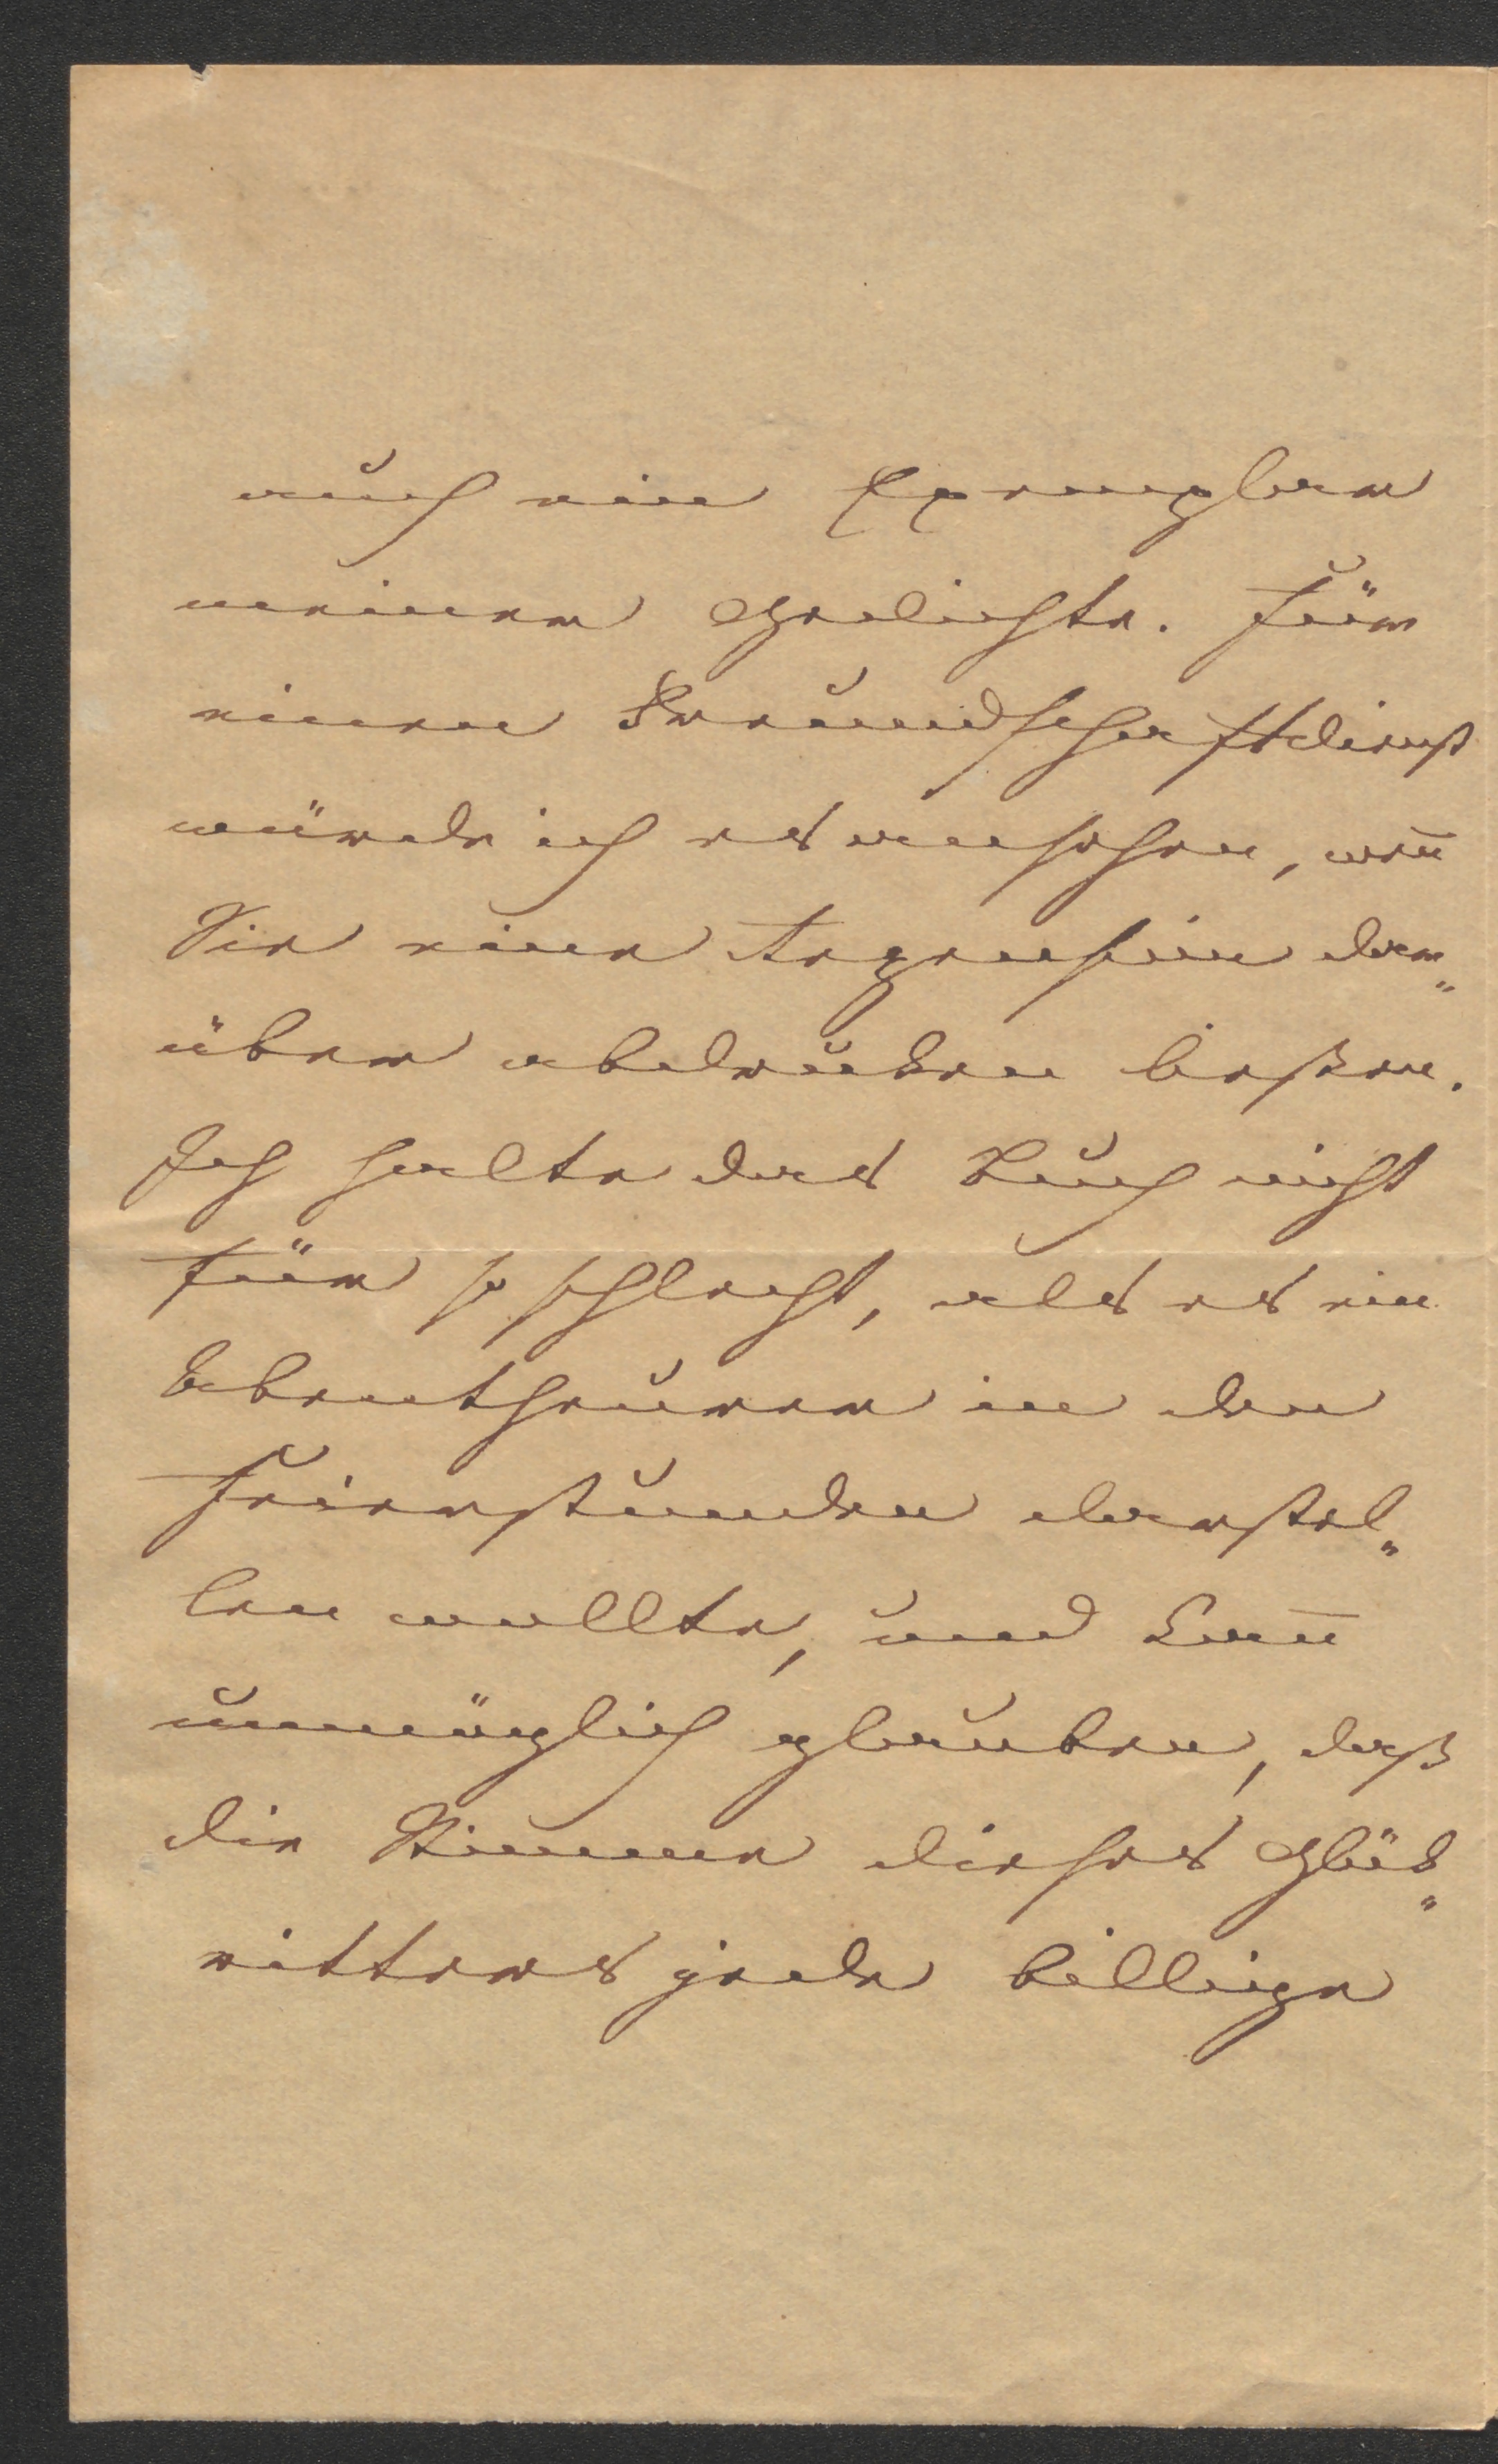 auch ein Exemplar
meiner Gedichte. Für
einen Freundschaftdienst
würde ich es ansehen, wen̄
Sie eine Rezension dar„
über abdrucken ließen.
Ich halte das Buch nicht
für so schlecht, als es ein
Abentheurer in den
Feierstunden darstel„
len wollte, und kan̄
unmöglich glauben, daß
die Stimme dieses Glück„
ritters jede billige